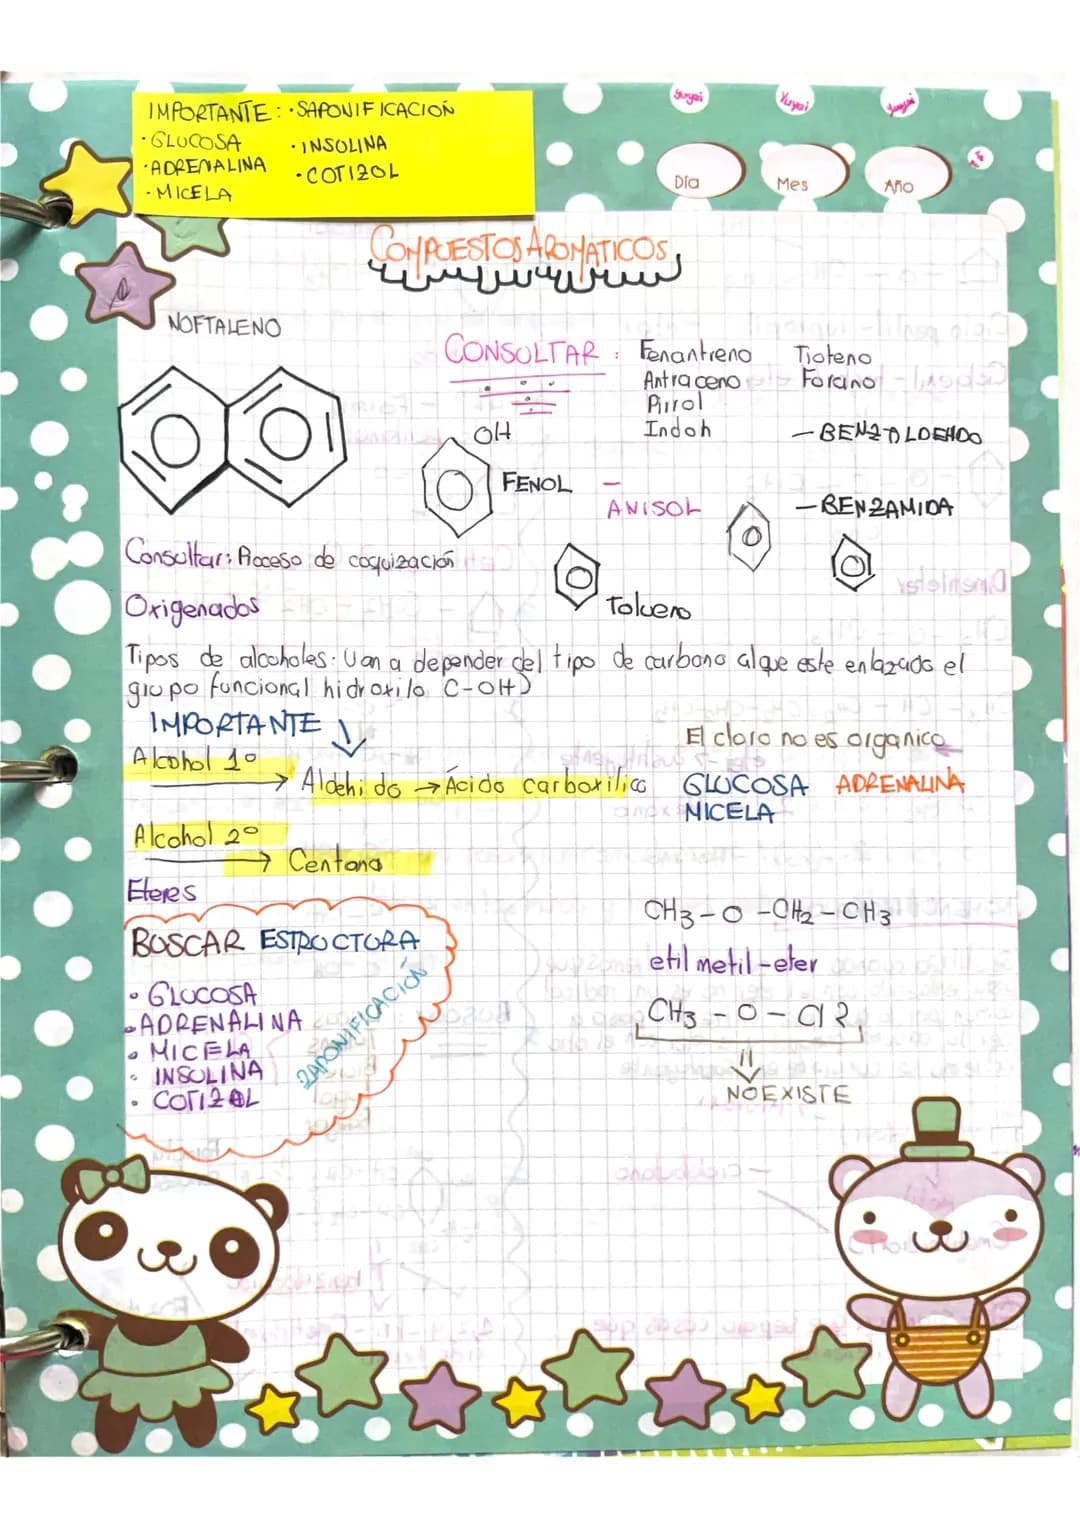 IMPORTANTE: · SAPONIFICACION
· GLUCOSA · INSULINA
· ADRENALINA · COTIZOL
· MICELA
yuyai
Yuyai
yuyai
Día
Mes
Año
COMPUESTOS AROMATICOS
NOFTALENO
CONSULTAR: Fenantreno Tioteno
Antraceno Forano
Pirrol
Indoh
OH
FENOL
ANISOL
- BENZOLDEHDO
- BENZAMIDA
Consultar: Proceso de coquización
Tolueno
Oxigenados
Tipos de alcoholes: Van a depender del tipo de carbono al que este enlazado el
grupo funcional hidroxilo C-OH)
IMPORTANTE ↓
Alcohol 1º
→ Aldehido → Ácido carboxilico
El cloro no es organico
GLUCOSA ADRENALINA
MICELA
Alcohol 2º
→ Centona
Eteres
BUSCAR ESTRUCTURA
· GLUCOSA
· ADRENALINA
· MICELA
· INSULINA
· COTIZOL
ZAPONIFICACIÓN
CH3 - O - CH2 - CH3
etil metil - eter
CH3 - O - Cl2
NO EXISTE